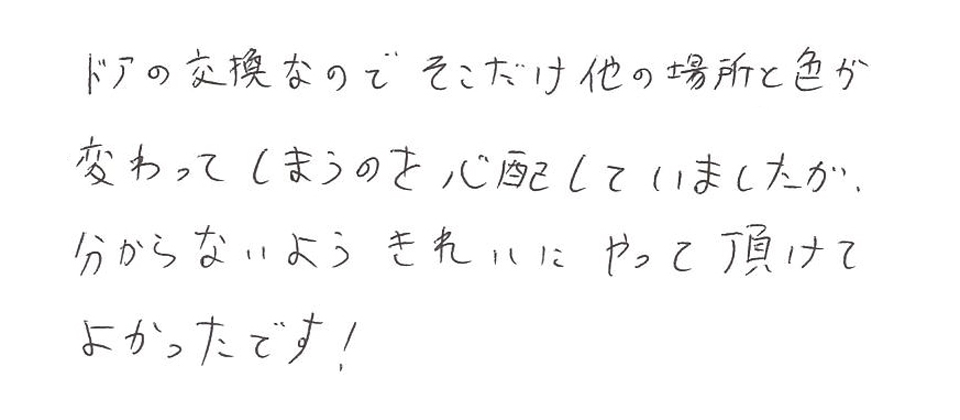 ドアの交換なので そこだけ他の場所と色が
変わってしまうのを心配していましたが、
分からないよう きれいに やって頂けて
よかったです!